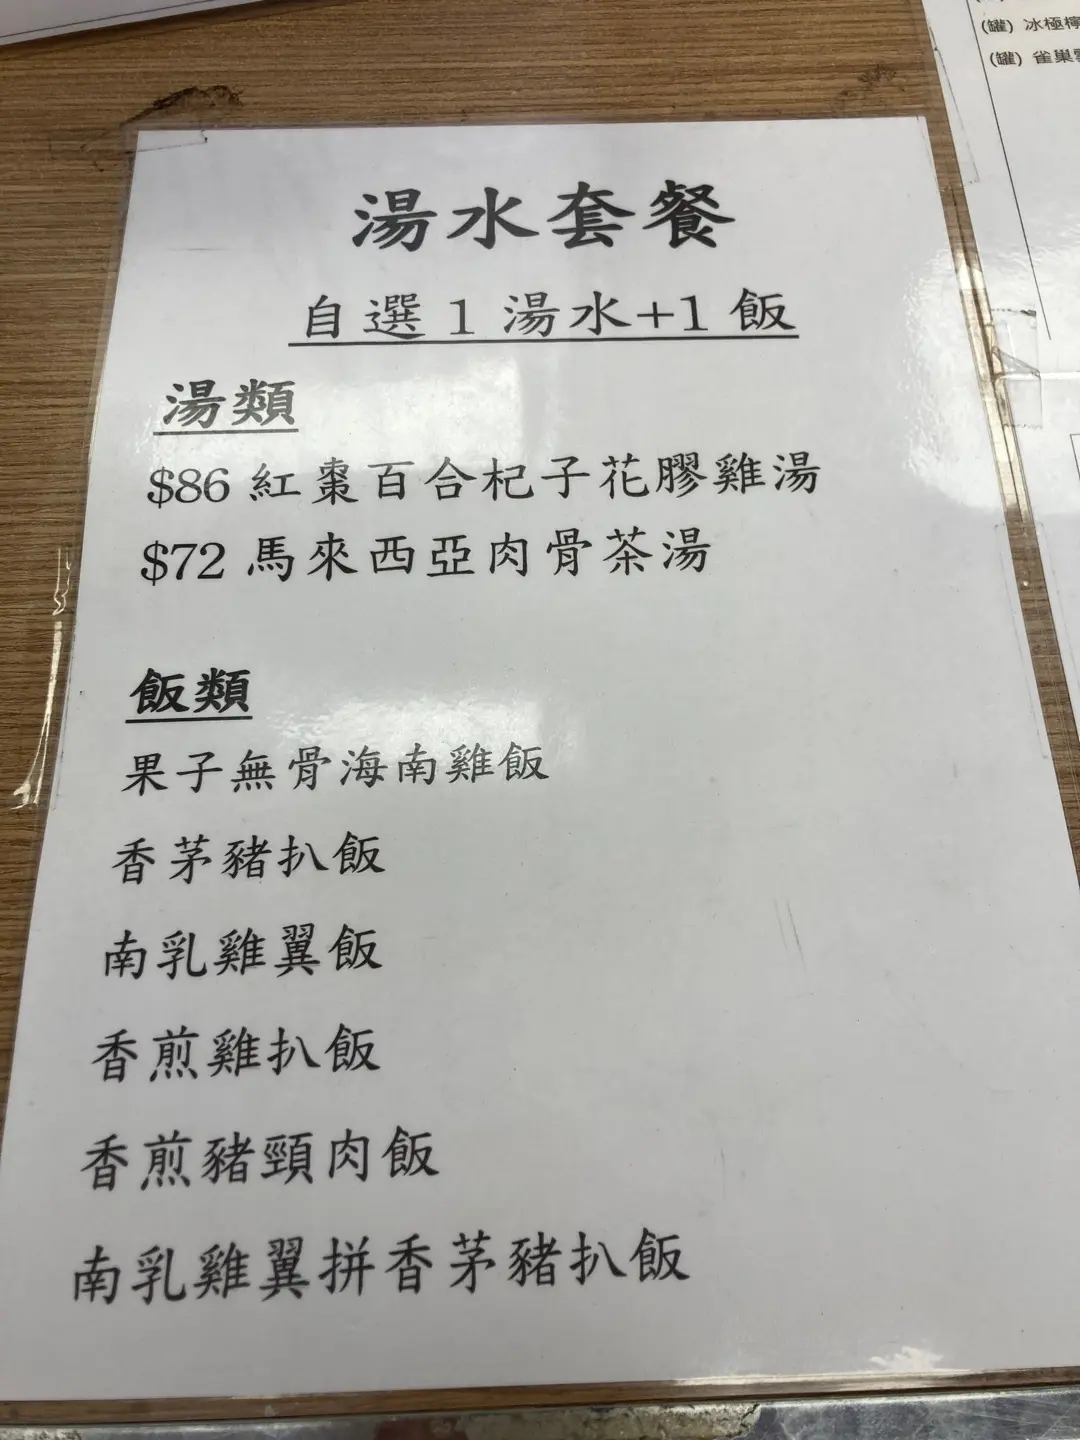 湯水套餐
自選1湯水+1飯
湯類
$86 紅棗百合杞子花膠雞湯
$72 馬來西亞肉骨茶湯
飯類
果子無骨海南雞飯
香茅豬扒飯
南乳雞翼飯
香煎雞扒飯
香煎豬頸肉飯
南乳雞翼拼香茅豬扒飯
(罐) 冰極檸
(罐) 雀巢